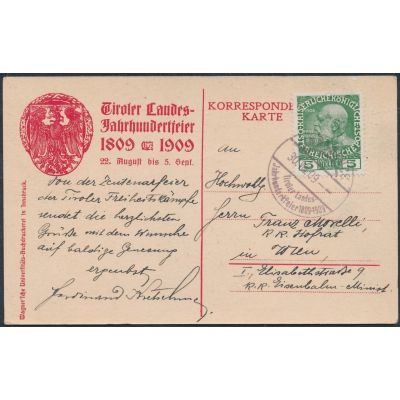 Tiroler Landes-
Jahrhundertfeier
1809 1909
22. August bis 5. Sept.
Von der Zentenarfeier
der Tiroler Freiheitskämpfe
sendet die herzlichsten
Grüße mit dem Wunsche
auf baldige Genesung
ergebenst
Ferdinand
Wagner'sche Universitäts-Buchdruckerei in Innsbruck.
KORRESPONDENZ-
KARTE
KAISERLICHE KÖNIGLICHE
ÖSTERREICHISCHE
5 5
Tiroler Landes-
Jahrhundertfeier 1809-1909
An
Hochwohlg.
Herrn Franz Morelli
k.k. Hofrat
in Wien
I., Elisabethstraße 9
k.k. Eisenbahn-Minist.